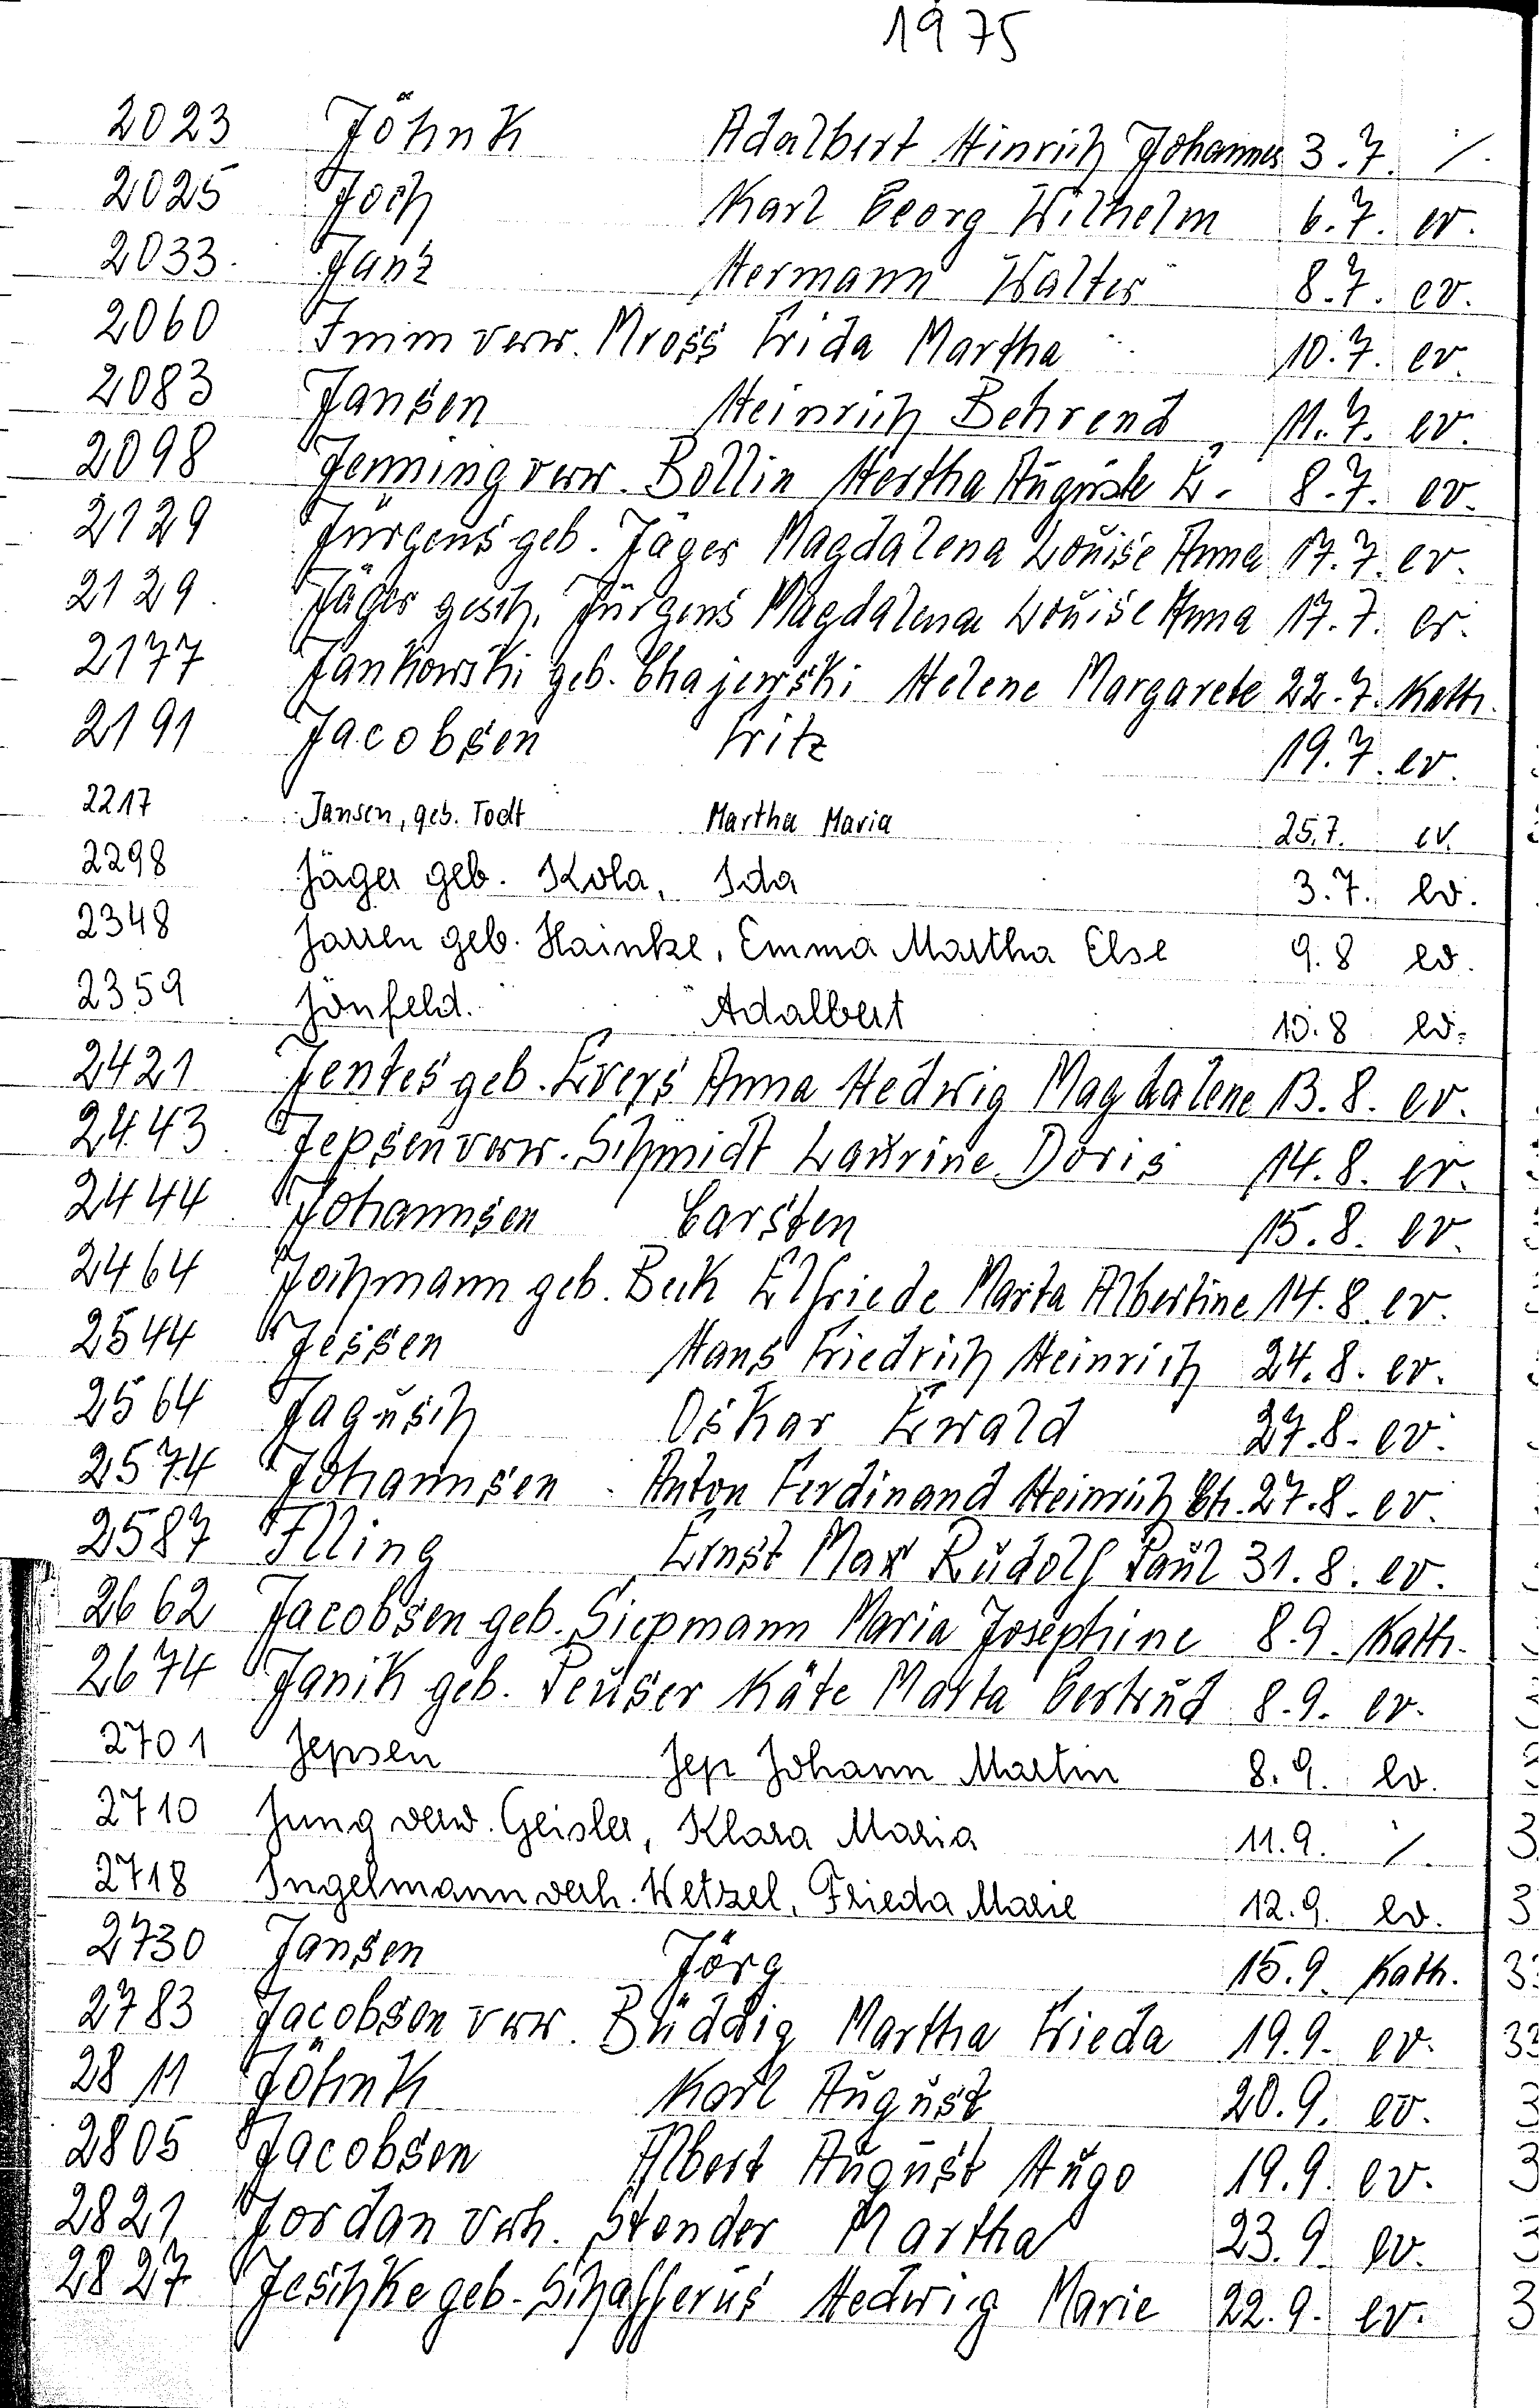 1975
2023 Jöhnk Adalbert Hinrich Johannes 3.7. /.
2025 Joch Karl Georg Wilhelm 6.7. ev.
2033 Janz Hermann Walter 8.7. ev.
2060 Imm verw. Mross Frida Martha 10.7. ev.
2083 Jansen Heinrich Behrend 11.7. ev.
2098 Jenning verw. Bollin Hertha Auguste E. 8.7. ev.
2129 Jürgens geb. Jäger Magdalena Louise Anna 17.7. ev.
2129 Jäger gesch. Jürgens Magdalena Louise Anna 17.7. ev.
2177 Jankowski geb. Chajewski Helene Margarete 22.7. Kath.
2191 Jacobsen Fritz 19.7. ev.
2217 Jansen, geb. Todt Martha Maria 25.7. ev.
2298 Jäger geb. Kola, Ida 3.7. ev.
2348 Jarren geb. Hainke, Emma Martha Else 9.8 ev.
2359 Jönfeld. Adalbert 10.8 ev.
2421 Jentes geb. Evers Anna Hedwig Magdalene 13.8. ev.
2443 Jepsen verw. Schmidt Laurine Doris 14.8. ev.
2444 Johannsen Carsten 15.8. ev.
2464 Jochmann geb. Beck Elfriede Marta Albertine 14.8. ev.
2544 Jessen Hans Friedrich Heinrich 24.8. ev.
2564 Jagusch Oskar Ewald 27.8. ev.
2574 Johannsen Anton Ferdinand Heinrich Ch. 27.8. ev.
2587 Illing Ernst Max Rudolf Paul 31.8. ev.
2662 Jacobsen geb. Siepmann Maria Josephine 8.9. Kath.
2674 Janik geb. Peuser Käte Marta Gertrud 8.9. ev.
2701 Jepsen Jep Johann Martin 8.9. ev.
2710 Jung verw. Geisler, Klara Maria 11.9. /.
2718 Ingelmann verh. Wetzel, Frieda Marie 12.9. ev.
2730 Jansen Jörg 15.9. Kath.
2783 Jacobsen verw. Büddig Martha Frieda 19.9. ev.
2811 Jöhnk Karl August 20.9. ev.
2805 Jacobsen Albert August Hugo 19.9. ev.
2821 Jordan verh. Stender Martha 23.9. ev.
2827 Jeschke geb. Schafferus Hedwig Marie 22.9. ev.